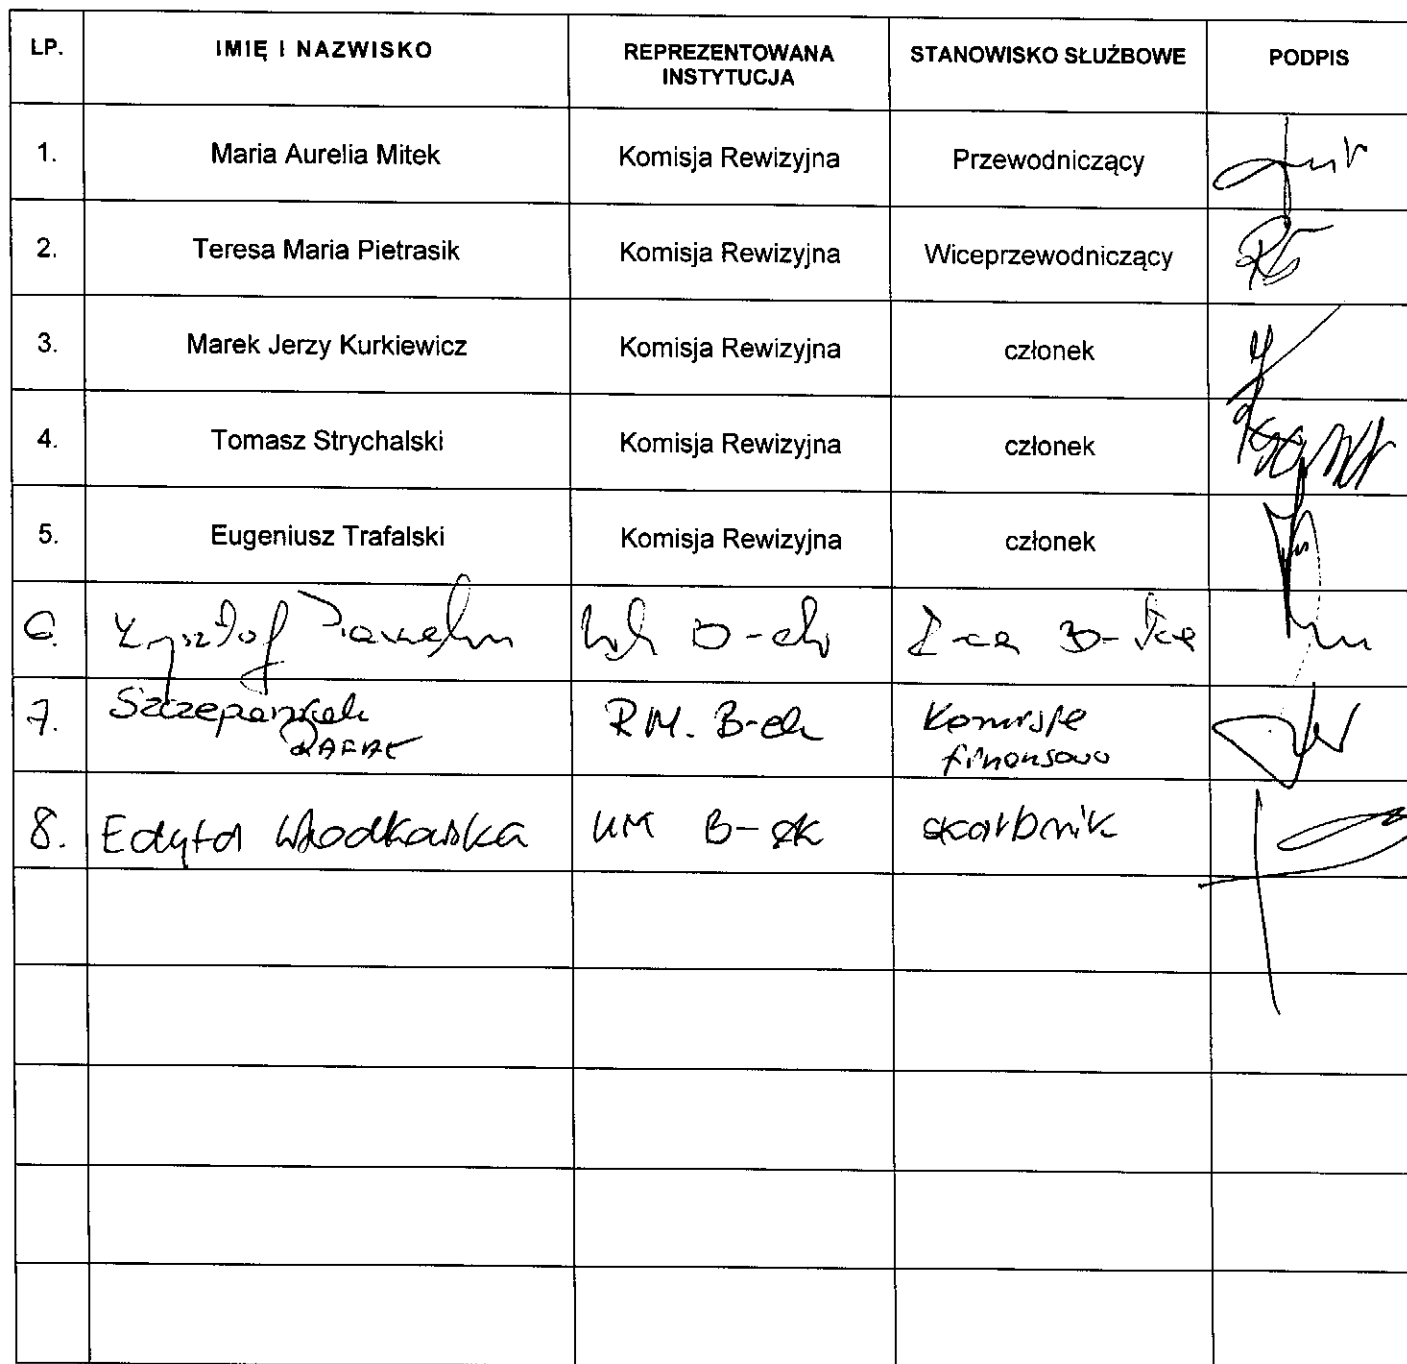 LP. IMIĘ I NAZWISKO REPREZENTOWANA INSTYTUCJA STANOWISKO SŁUŻBOWE PODPIS
1. Maria Aurelia Mitek Komisja Rewizyjna Przewodniczący
2. Teresa Maria Pietrasik Komisja Rewizyjna Wiceprzewodniczący
3. Marek Jerzy Kurkiewicz Komisja Rewizyjna członek
4. Tomasz Strychalski Komisja Rewizyjna członek
5. Eugeniusz Trafalski Komisja Rewizyjna członek
6. Krzysztof Z-ca
7. Szczepaniak RAFAŁ RM. Komisja finansowa
8. Edyta UM skarbnik